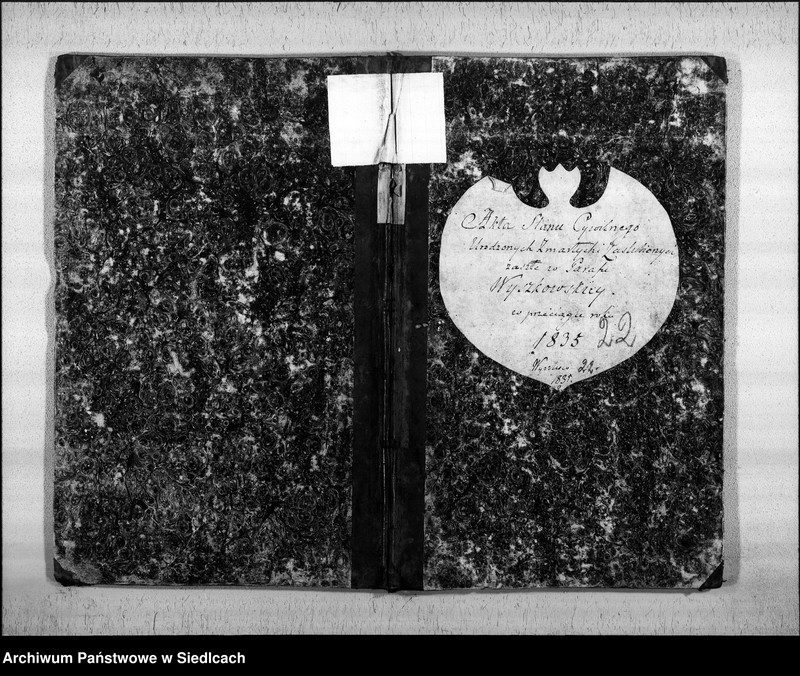 Akta Stanu Cywilnego
Urodzonych Zmarłych i Zaślubionych
zaszłe w Parafii
Wyszkowskiey.
w przeciągu roku
1835 22
22.
1835.
Archiwum Państwowe w Siedlcach